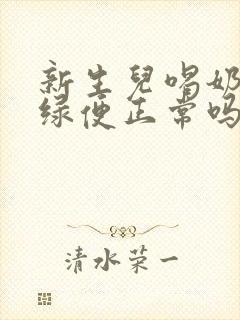 新生兒喝奶
绿便正常吗
清水荣一